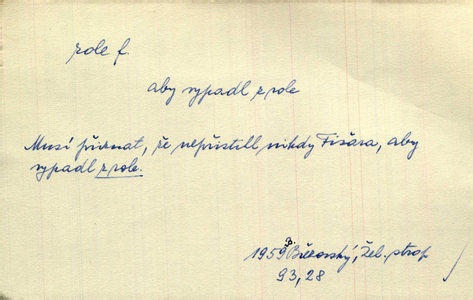 role f.
aby vypadl z role
Musí přiznat, že nepřistihl nikdy Fišara, aby
vypadl z role.
1959 B. Březovský, Žel. strop
93,28